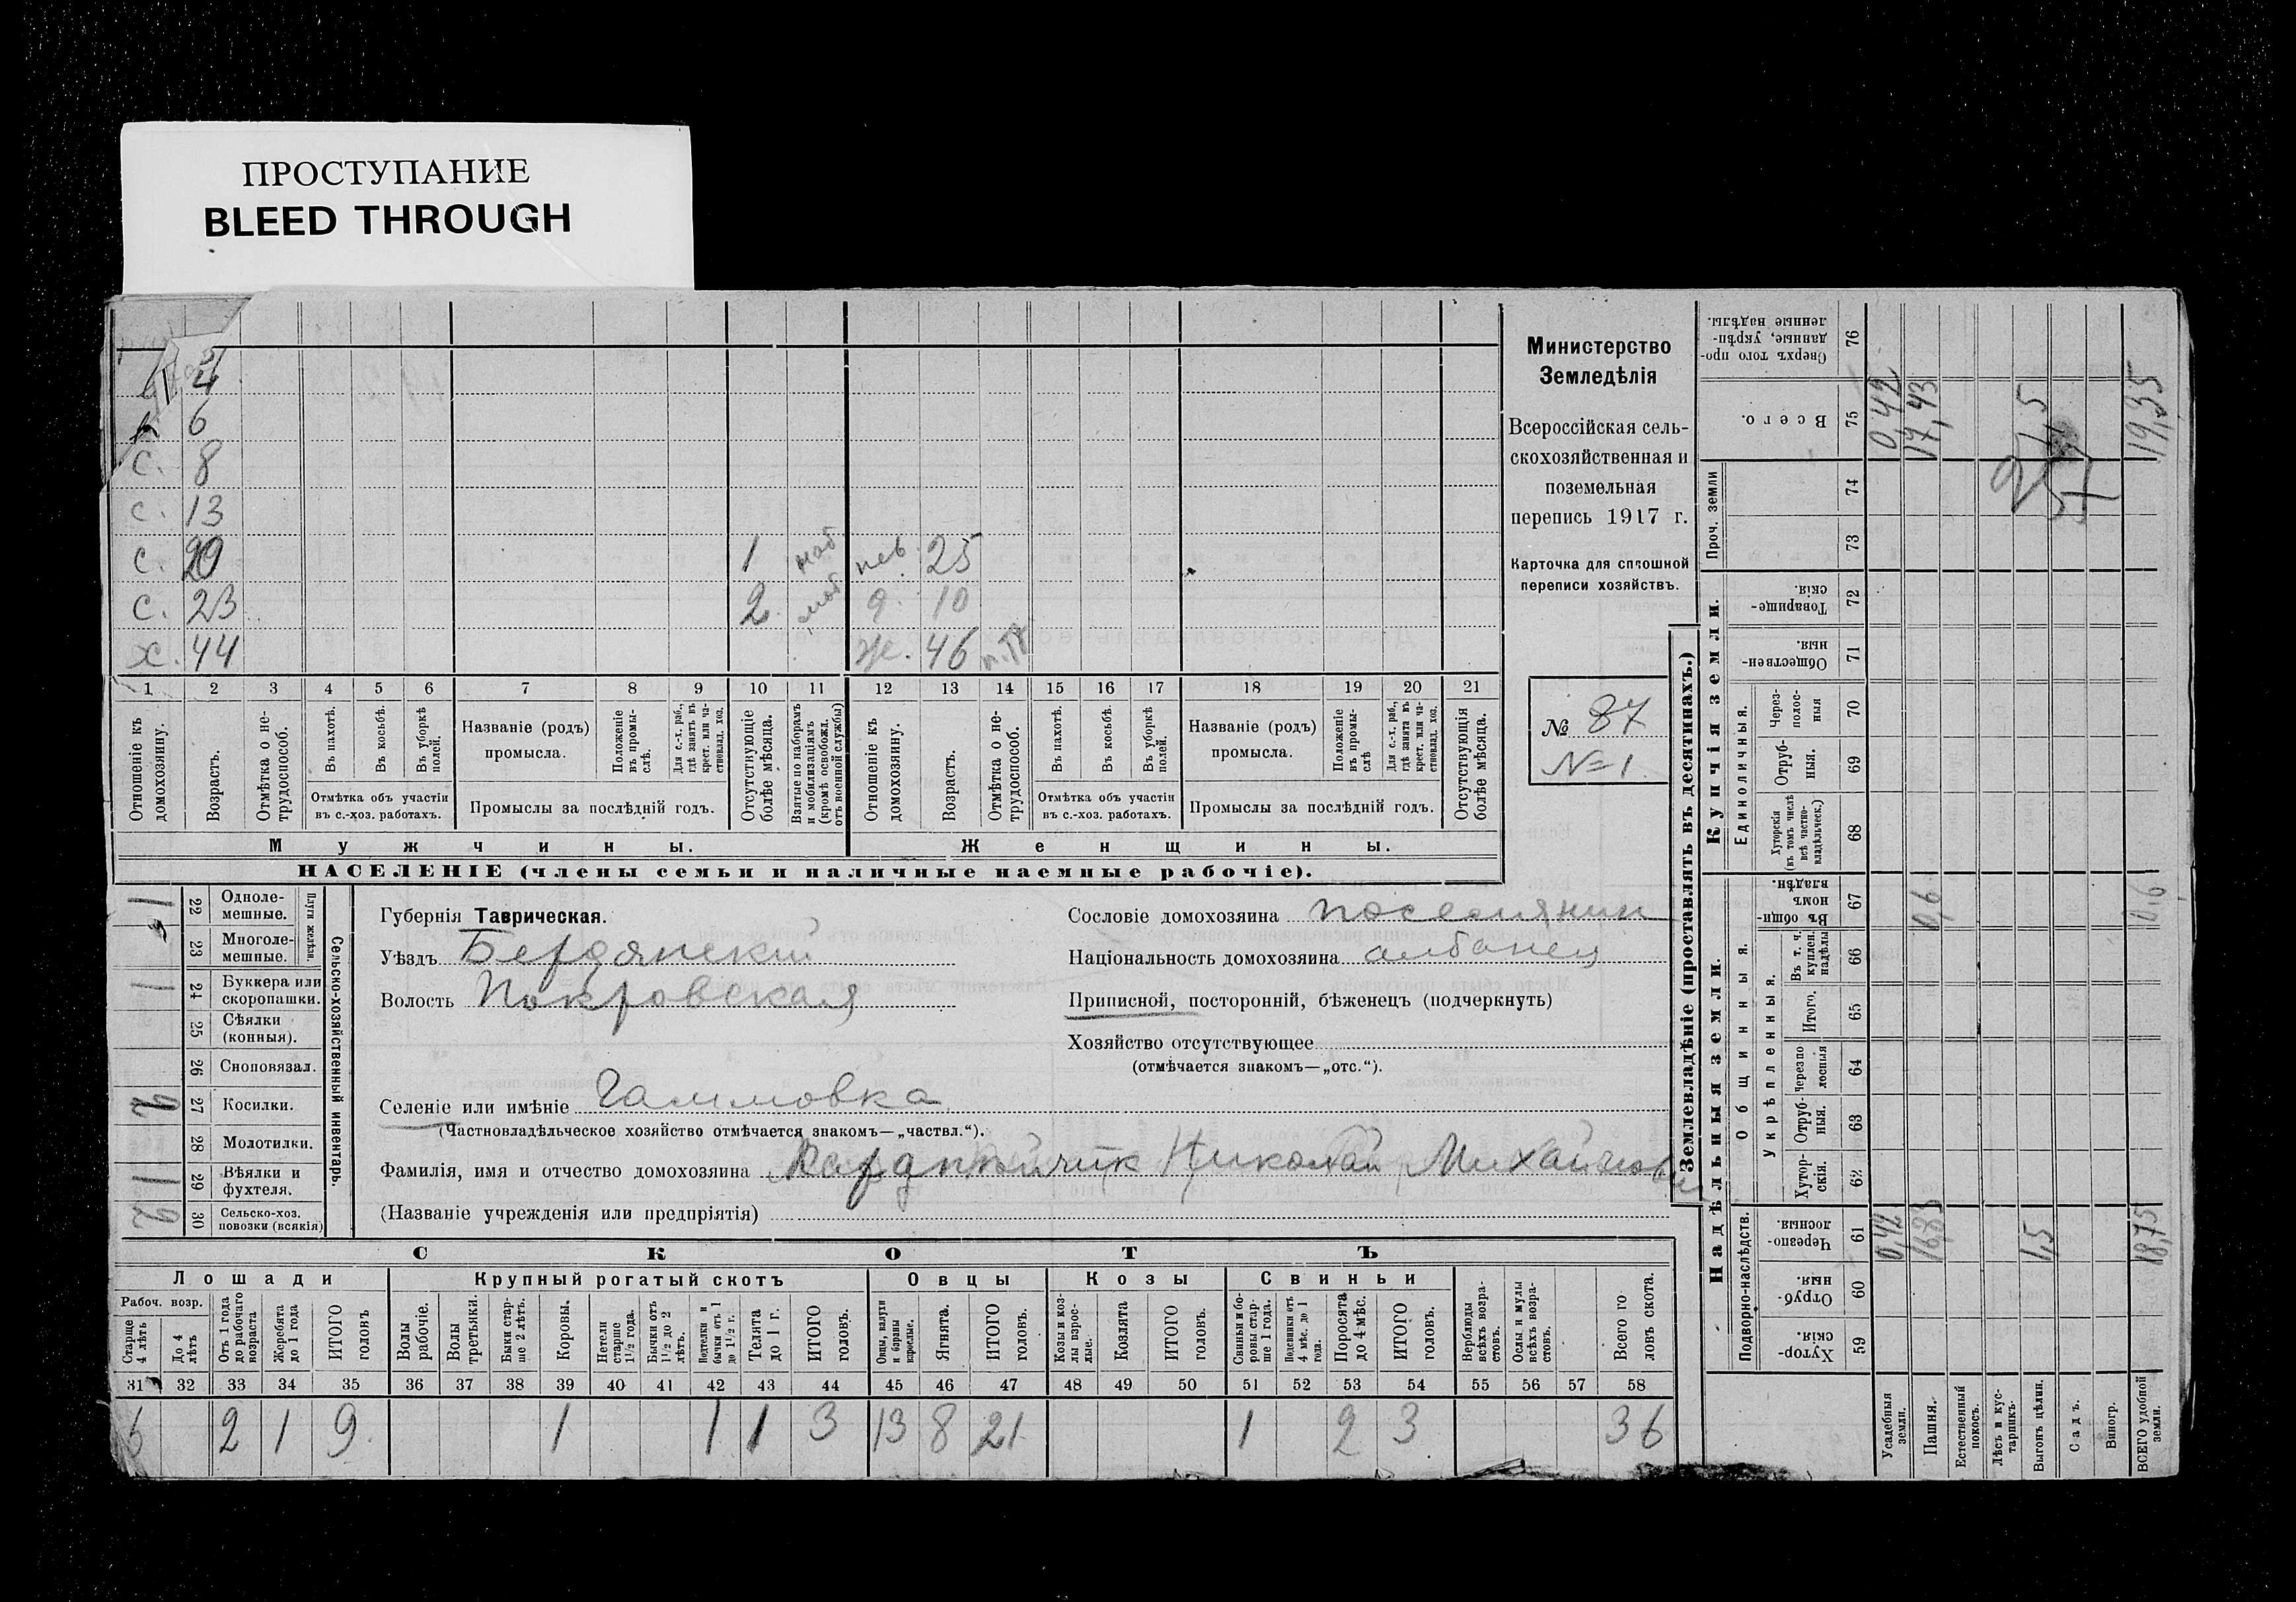 ПРОСТУПАНИЕ
BLEED THROUGH
4
6
с. 8
с. 13
с. 20 1 моб нев. 25
с. 23 2. моб д. 10
х. 44 ж. 46
1 2 3 4 5 6 7 8 9 10 11 12 13 14 15 16 17 18 19 20 21
Отношеніе къ домохозяину.
Возрастъ.
Отмѣтка о не-трудоспособ.
Въ пахотѣ.
Въ косьбѣ.
Въ уборкѣ полей.
Отмѣтка объ участіи
въ с.-хоз. работахъ.
Названіе (родъ)
промысла.
Положеніе въ промы-слѣ.
Для с.-х. раб., гдѣ занятъ въ крест. или ча-стновлад. хоз.
Промыслы за послѣдній годъ.
Отсутствующіе болѣе мѣсяца.
Взятые по наборамъ и мобилизаціямъ (кромѣ освобожд. отъ военной службы)
Отношеніе къ домохозяину.
Возрастъ.
Отмѣтка о не-трудоспособ.
Въ пахотѣ.
Въ косьбѣ.
Въ уборкѣ полей.
Отмѣтка объ участіи
въ с.-хоз. работахъ.
Названіе (родъ)
промысла.
Положеніе въ промы-слѣ
Для с.-х. раб., гдѣ занята въ крест. или ча-стновлад. хоз.
Промыслы за послѣдній годъ.
Отсутствующія болѣе мѣсяца.
Мужчины. Женщины.
НАСЕЛЕНІЕ (члены семьи и наличные наемные рабочіе).
Министерство
Земледѣлія
Всероссійская сель-
скохозяйственная и
поземельная
перепись 1917 г.
Карточка для сплошной
переписи хозяйствъ.
№ 87
№ 1
22 Одноле-мешные. 1
23 Многоле-мешные.
Плуги желѣзн.
24 Буккера или скоропашки. 1
25 Сѣялки (конныя).
26 Сноповязал.
27 Косилки.
28 Молотилки.
29 Вѣялки и фухтеля. 1
30 Сельско-хоз. повозки (всякія) 2
Сельско-хозяйственный инвентарь.
Губернія Таврическая.
Уѣздъ Бердянскій
Волость Покровская
Селеніе или имѣніе Гаммовка
(Частновладѣльческое хозяйство отмѣчается знакомъ—„частвл.“).
Фамилія, имя и отчество домохозяина Николай Михайлов
(Названіе учрежденія или предпріятія)
Сословіе домохозяина поселянин
Національность домохозяина албанец
Приписной, посторонній, бѣженецъ (подчеркнуть)
Хозяйство отсутствующее
(отмѣчается знакомъ—„отс.“).
СКОТЪ
Лошади Крупный рогатый скотъ Овцы Козы Свиньи
Рабоч. возр.
Старше 4 лѣтъ
До 4 лѣтъ
Отъ 1 года до рабочаго возраста
Жеребята до 1 года
ИТОГО головъ
Волы рабочіе.
Волы третьяки.
Быки стар-ше 2 лѣтъ.
Коровы.
Нетели старше 1½ года.
Бычки отъ 1½ до 2 лѣтъ.
Подтелки и бычки отъ 1 до 1½ г.
Телята до 1 г.
ИТОГО головъ.
Овцы, валухи и бараны взрослые.
Ягнята.
ИТОГО головъ.
Козы и коз-лы взрос-лые.
Козлята
ИТОГО головъ.
Свиньи и бо-ровы стар-ше 1 года.
Подсвинки отъ 4 мѣс. до 1 года.
Поросята до 4 мѣс.
ИТОГО головъ.
Верблюды всѣхъ возра-стовъ.
Ослы и мулы всѣхъ возра-стовъ.
Всего го-ловъ скота.
31 32 33 34 35 36 37 38 39 40 41 42 43 44 45 46 47 48 49 50 51 52 53 54 55 56 57 58
6 2 1 9 1 1 1 3 13 8 21 1 2 3 36
Землевладѣніе (проставлять въ десятинахъ.)
Надѣльныя земли. Купчія земли.
Подворно-наслѣдств.
Общинныя.
Укрѣпленныя.
Единоличныя.
Проч. земли
59 Хутор-скія.
60 Отруб-ныя.
61 Черезпо-лосныя.
62 Хутор-скія.
63 Отруб-ныя.
64 Черезпо-лосныя
65 Итого.
66 Въ т. ч. куплен. надѣлы
67 Въ общин-номъ владѣн.
68 Хуторскія (въ томъ числѣ всѣ частно-владѣльческ.)
69 Отруб-ныя.
70 Через-полос-ныя
71 Обществен-ныя.
72 Товарище-скія
73
74
75 Всего.
76 Сверхъ того про-данные, укрѣп-ленные надѣлы.
Усадебныя земли. 0,42 0,42
Пашня. 16,83 0,6 17,43
Естественный покосъ.
Лѣсъ и кус-тарникъ.
Выгонъ цѣлин. 1,5 1,5
Садъ.
Виногр.
ВСЕГО удобной земли. 18,75 0,6 19,35